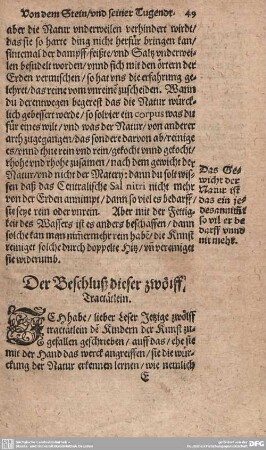 Von dem Stein/ vnd seiner Tugendt. 49
aber die Natur vnderweilen verhindert wirdt/
das sie so harte ding nicht herfür bringen kan/
sintemal der dampff/ feiste/ vnd Saltz vnderwei-
len besudelt worden/ vnnd sich mit den örtern der
Erden vermischen/ so hat vns die erfahrung ge-
lehret/ das reine vom vnreinē zuscheiden. Wann
du derentwegen begerest das die Natur würck-
lich gebessert werde/ so solvier ein corpus was du
für eines wilt/ vnd was der Natur/ von anderer
arth zugegangen/ das sonder darvon ab/ reinige
es/ vnnd thue rein vnd rein/ gekocht vnnd gekocht/
rhohe vnd rhohe zusamen/ nach dem gewicht der
Natur/ vnd nicht der Matery: dann du solt wis-
sen daß das Centralische Sal nitri nicht mehr
von der Erden annimpt/ dann so viel es bedarff/
sie seye rein oder vnrein. Aber mit der Fettig-
keit des Wassers ist es anders beschaffen/ dann
solche kan man nimmermehr rein habē/ die Kunst
reiniget solche durch doppelte Hitz/ vñ vereiniget
sie widerumb.
Das Ge-
wicht der
Natur ist
das ein je-
des annimt
so vil er be
darff vnnd
nit mehr.
Der Beschluß dieser zwölff
Tractätlein.
JCh habe/ lieber Leser Jetzige zwölff
tractätlein dē Kindern der Kunst zu-
gefallen geschrieben/ auff das/ ehe sie
mit der Hand das werck angreiffen/ sie die wür-
ckung der Natur erkennen lernen/ wie nemlich
E